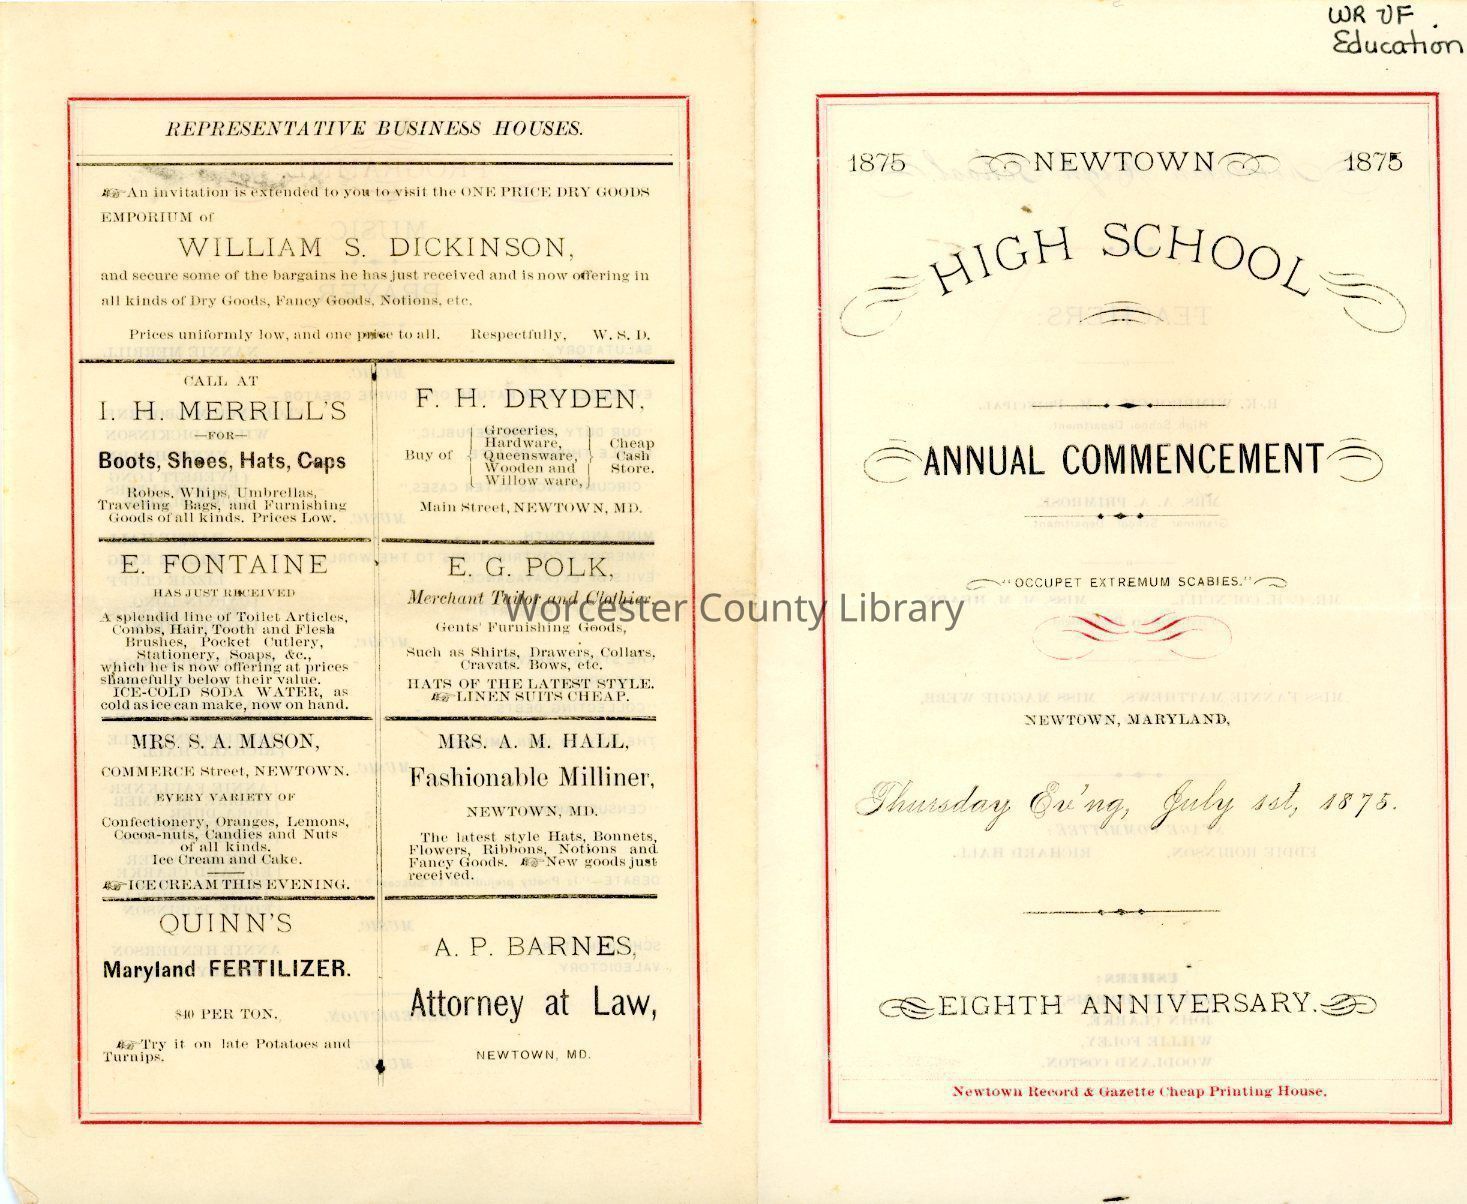 WR VF
Education
REPRESENTATIVE BUSINESS HOUSES.
An invitation is extended to you to visit the ONE PRICE DRY GOODS
EMPORIUM of
WILLIAM S. DICKINSON,
and secure some of the bargains he has just received and is now offering in
all kinds of Dry Goods, Fancy Goods, Notions, etc.
Prices uniformly low, and one price to all. Respectfully, W. S. D.
CALL AT
I. H. MERRILL'S
—FOR—
Boots, Shoes, Hats, Caps
Robes, Whips, Umbrellas,
Traveling Bags, and Furnishing
Goods of all kinds. Prices Low.
F. H. DRYDEN,
Buy of
Groceries,
Hardware,
Queensware,
Wooden and
Willow ware,
Cheap
Cash
Store.
Main Street, NEWTOWN, MD.
E. FONTAINE
HAS JUST RECEIVED
A splendid line of Toilet Articles,
Combs, Hair, Tooth and Flesh
Brushes, Pocket Cutlery,
Stationery, Soaps, &c.,
which he is now offering at prices
shamefully below their value.
ICE-COLD SODA WATER, as
cold as ice can make, now on hand.
E. G. POLK,
Merchant Tailor and Clothier
Gents' Furnishing Goods,
Such as Shirts, Drawers, Collars,
Cravats. Bows, etc.
HATS OF THE LATEST STYLE.
LINEN SUITS CHEAP.
MRS. S. A. MASON,
COMMERCE Street, NEWTOWN.
EVERY VARIETY OF
Confectionery, Oranges, Lemons,
Cocoa-nuts, Candies and Nuts
of all kinds.
Ice Cream and Cake.
ICE CREAM THIS EVENING.
MRS. A. M. HALL,
Fashionable Milliner,
NEWTOWN, MD.
The latest style Hats, Bonnets,
Flowers, Ribbons, Notions and
Fancy Goods. New goods just
received.
QUINN'S
Maryland FERTILIZER.
$40 PER TON.
Try it on late Potatoes and
Turnips.
A. P. BARNES,
Attorney at Law,
NEWTOWN, MD.
1875 NEWTOWN 1875
HIGH SCHOOL
ANNUAL COMMENCEMENT
"OCCUPET EXTREMUM SCABIES."
NEWTOWN, MARYLAND,
Thursday Ev'ng, July 1st, 1875.
EIGHTH ANNIVERSARY.
Newtown Record & Gazette Cheap Printing House.
Worcester County Library